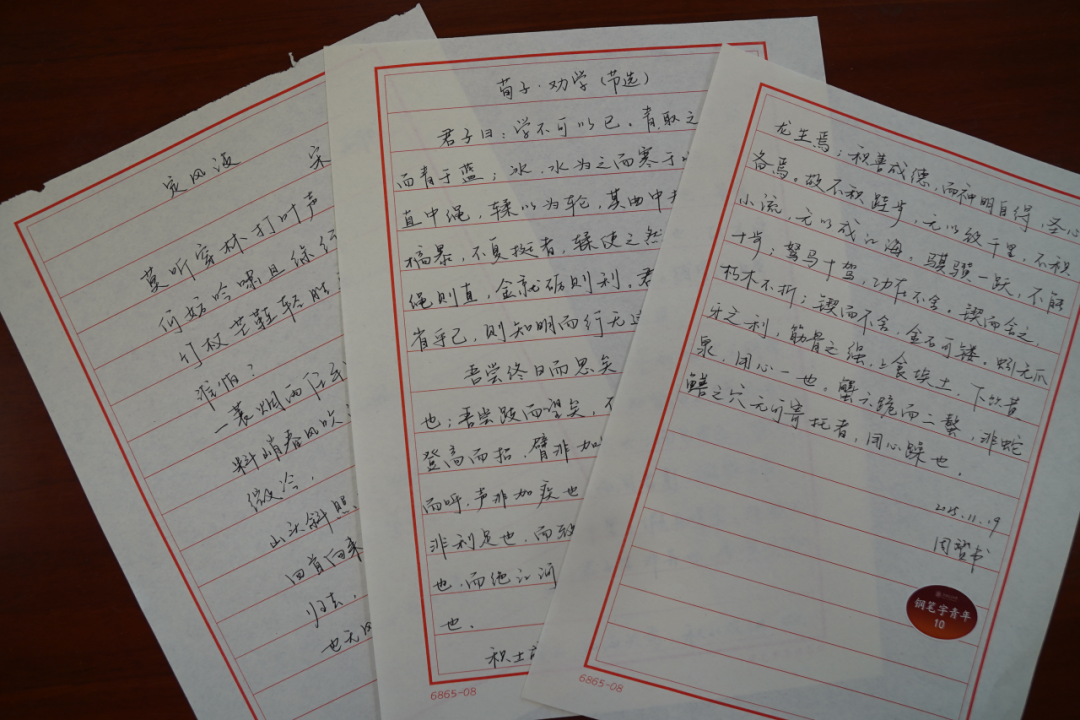 定风波 宋
莫听穿林打叶声
何妨吟啸且徐行
竹杖芒鞋轻胜
谁怕？
一蓑烟雨任
料峭春风吹
微冷，
山头斜照
回首向来
归去，
也无风
荀子·劝学（节选）
君子曰：学不可以已。青取之
而青于蓝；冰，水为之而寒于
直中绳，輮以为轮，其曲中
槁暴，不复挺者，輮使之然
绳则直，金就砺则利，君
省乎己，则知明而行无过
吾尝终日而思矣
也；吾尝跂而望矣，不
登高而招，臂非加
而呼，声非加疾也
非利足也，而致
也，而绝江河
也。
积土
6865-08
龙生焉；积善成德，而神明自得，圣心
备焉。故不积跬步，无以致千里，不积
小流，无以成江海，骐骥一跃，不能
十步；驽马十驾，功在不舍。锲而舍之，
朽木不折；锲而不舍，金石可镂。蚓无爪
牙之利，筋骨之强，上食埃土，下饮黄
泉，用心一也，蟹六跪而二螯，非蛇
鳝之穴无可寄托者，用心躁也。
2025.11.19
钢笔字青年
10
6865-08